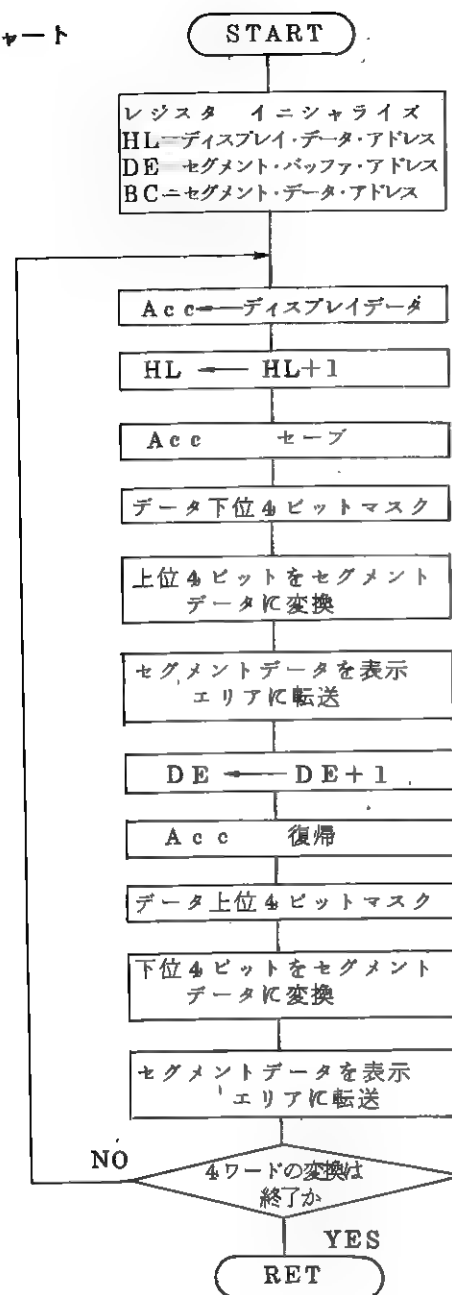 ャート
START
レジスタ イニシャライズ
HL＝ディスプレイ・データ・アドレス
DE セグメント・バッファ・アドレス
BC＝セグメント・データ・アドレス
Acc←ディスプレイデータ
HL ← HL+1
Acc セーブ
データ下位4ビットマスク
上位4ビットをセグメント
データに変換
セグメントデータを表示
エリアに転送
DE ← DE+1
Acc 復帰
データ上位4ビットマスク
下位4ビットをセグメント
データに変換
セグメントデータを表示
エリアに転送
NO
4ワードの変換は
終了か
YES
RET